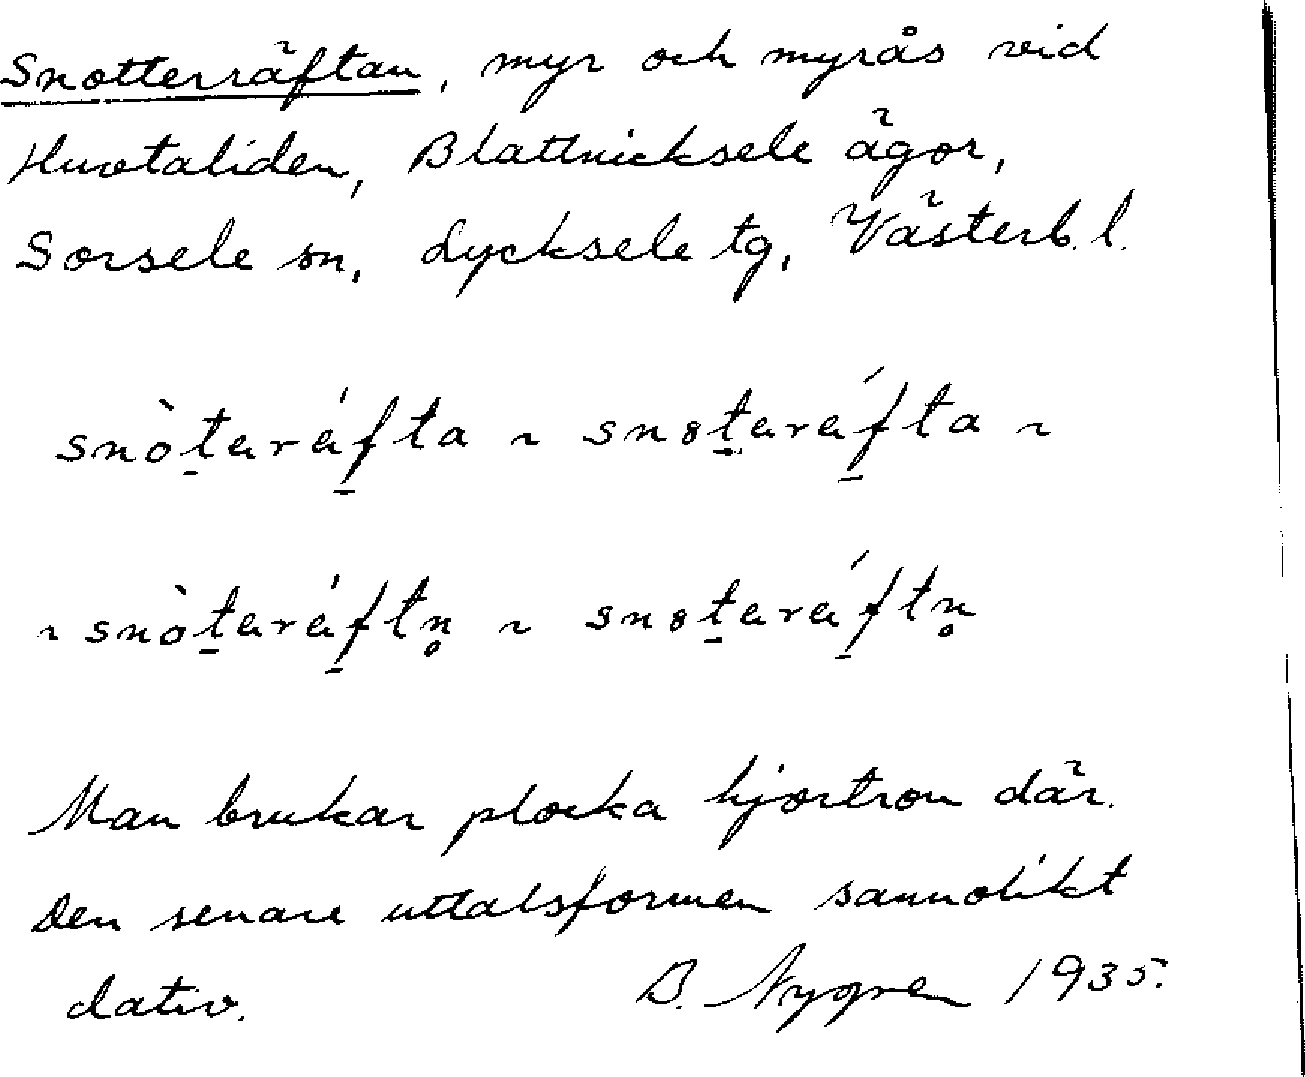 Snotterräftan, myr och myrås vid
Huvtaliden, Blattnicksele ägor,
Sorsele sn, Lycksele tg, Västerb. l.
snòta̱ráfta ~ snota̱ráfta ~
~ snòta̱ráftn̥ ~ snota̱ráftn̥
Man brukar plocka hjortron där.
Den senare uttalsformen sannolikt
dativ. B. Nygren 1935.